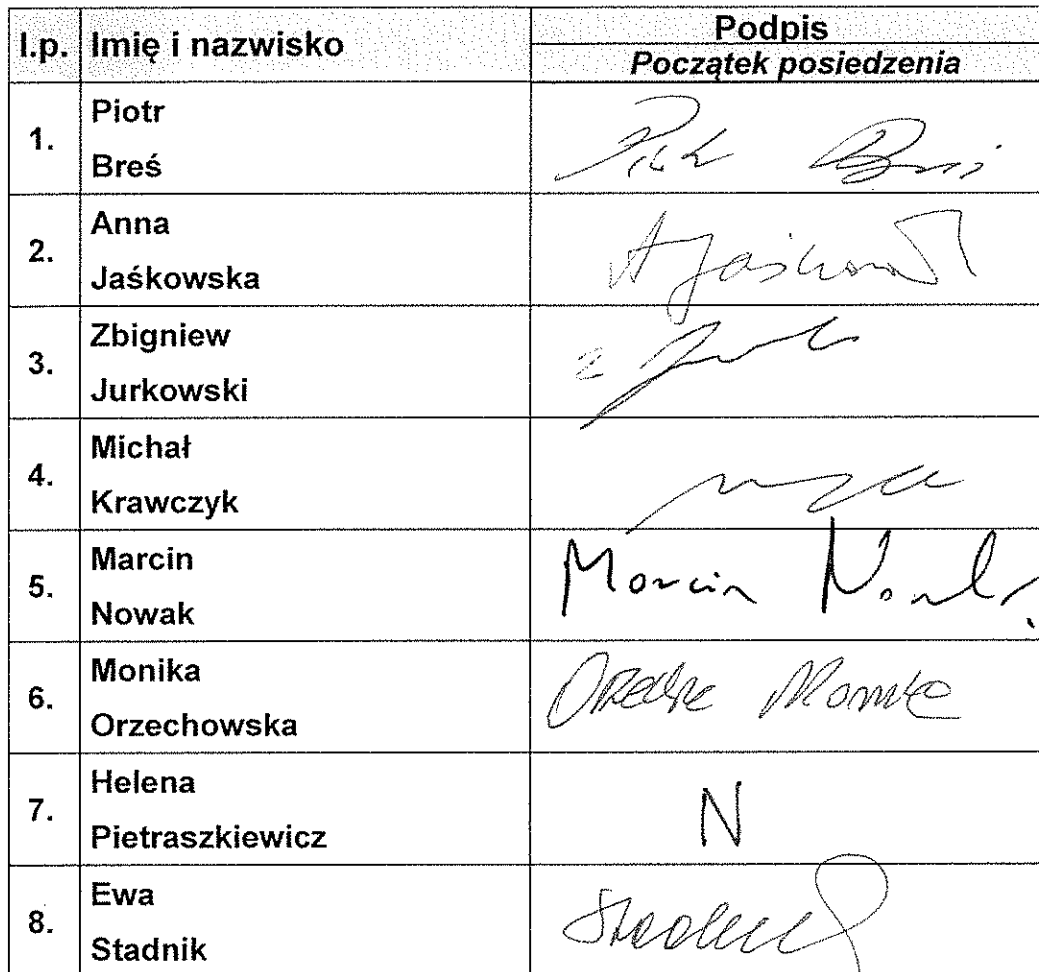 l.p. Imię i nazwisko Podpis
Początek posiedzenia
1. Piotr
Breś
2. Anna
Jaśkowska
A Jaśkows
3. Zbigniew
Jurkowski
4. Michał
Krawczyk
5. Marcin
Nowak
Marcin Nowak
6. Monika
Orzechowska
7. Helena
Pietraszkiewicz
N
8. Ewa
Stadnik